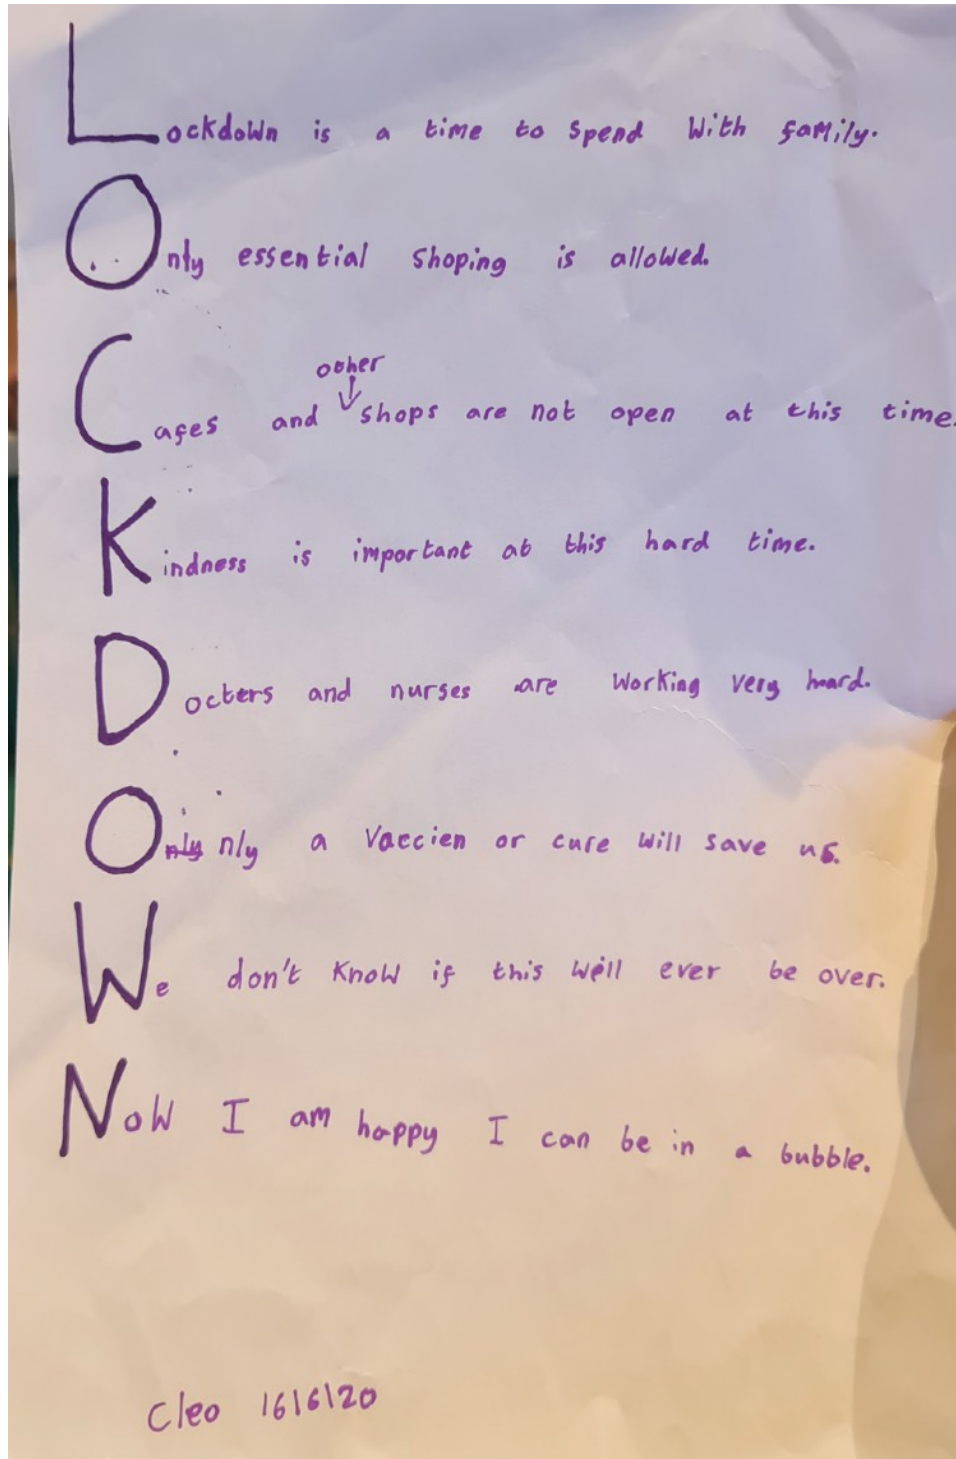 Lockdown is a time to spend with family.
Only essential shoping is allowed.
other
Cafes and shops are not open at this time.
Kindness is important at this hard time.
Docters and nurses are working very hard.
Only nly a vaccien or cure will save us.
We don't know if this will ever be over.
Now I am happy I can be in a bubble.
Cleo 16\6\20